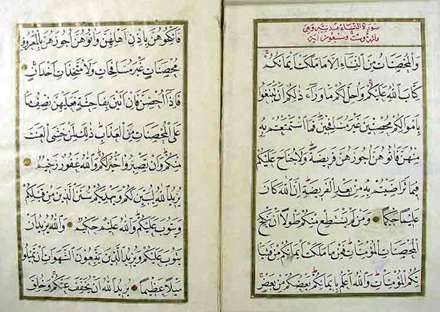 سورة النساء مدنية وهي
وست وسبعون آية
والمحصنات من النساء الا ما ملكت ايمانكم
كتاب الله عليكم واحل لكم ما وراء ذلكم ان تبتغوا
باموالكم محصنين غير مسافحين فما استمتعتم به
منهن فاتوهن اجورهن فريضة ولا جناح عليكم
فيما تراضيتم به من بعد الفريضة ان الله كان
عليما حكيما ومن لم يستطع منكم طولا ان ينكح
المحصنات المؤمنات فمن ما ملكت ايمانكم من فتيا
تكم المؤمنات والله اعلم بايمانكم بعضكم من بعض
فانكحوهن باذن اهلهن واتوهن اجورهن بالمعروف
محصنات غير مسافحات ولا متخذات اخدان
فاذا احصن فان اتين بفاحشة فعليهن نصف ما
على المحصنات من العذاب ذلك لمن خشي العنت
منكم وان تصبروا خير لكم والله غفور رحيم
يريد الله ليبين لكم ويهديكم سنن الذين من قبلكم
ويتوب عليكم والله عليم حكيم والله يريد ان
يتوب عليكم ويريد الذين يتبعون الشهوات ان تميلوا
ميلا عظيما يريد الله ان يخفف عنكم وخلق